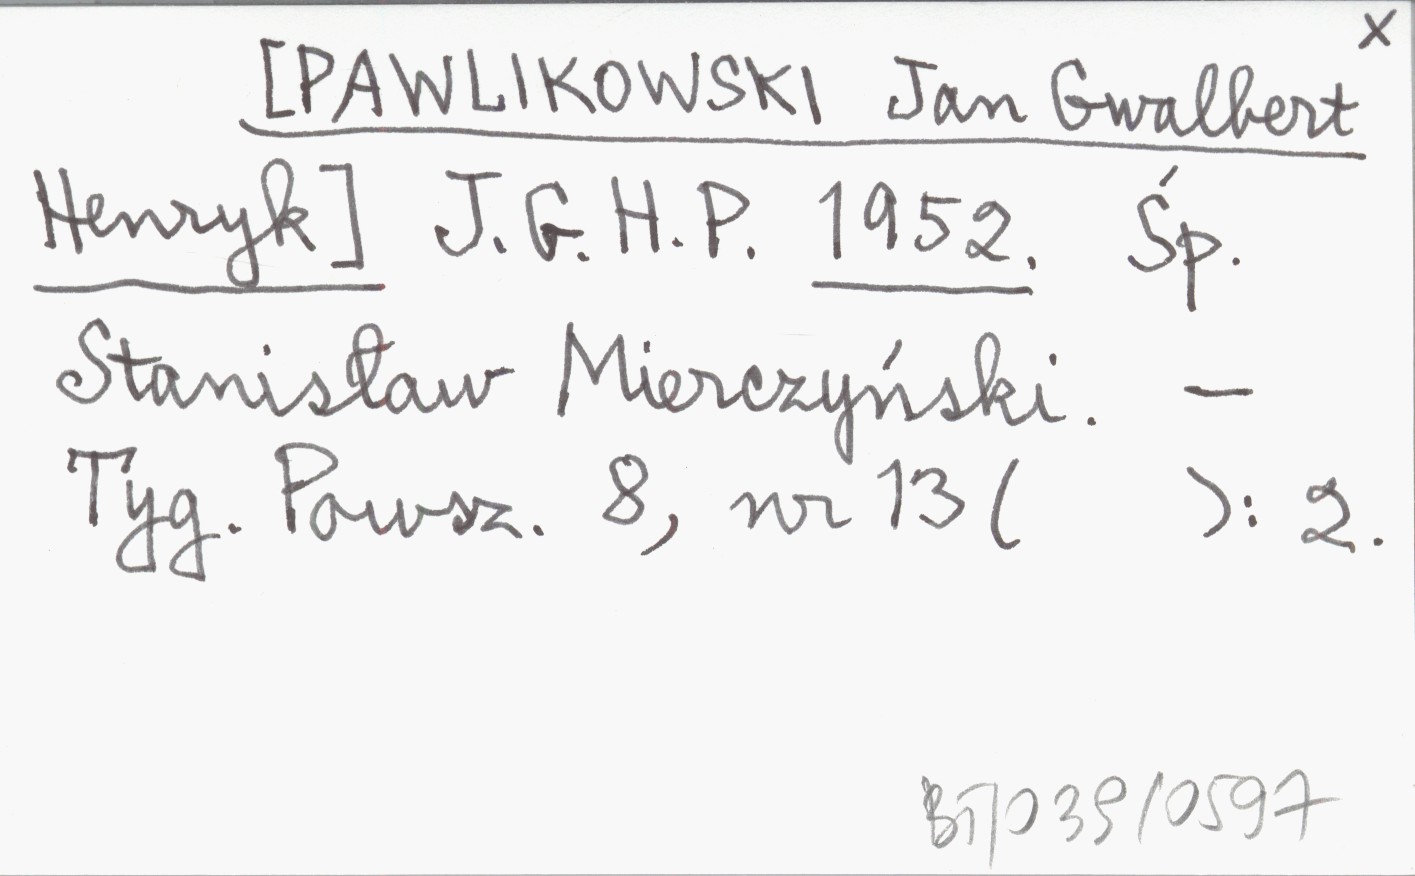 x
[PAWLIKOWSKI Jan Gwalbert
Henryk] J.G.H.P. 1952. Śp.
Stanisław Mierczyński. —
Tyg. Powsz. 8, nr 13 ( ): 2.
BT/039/0597